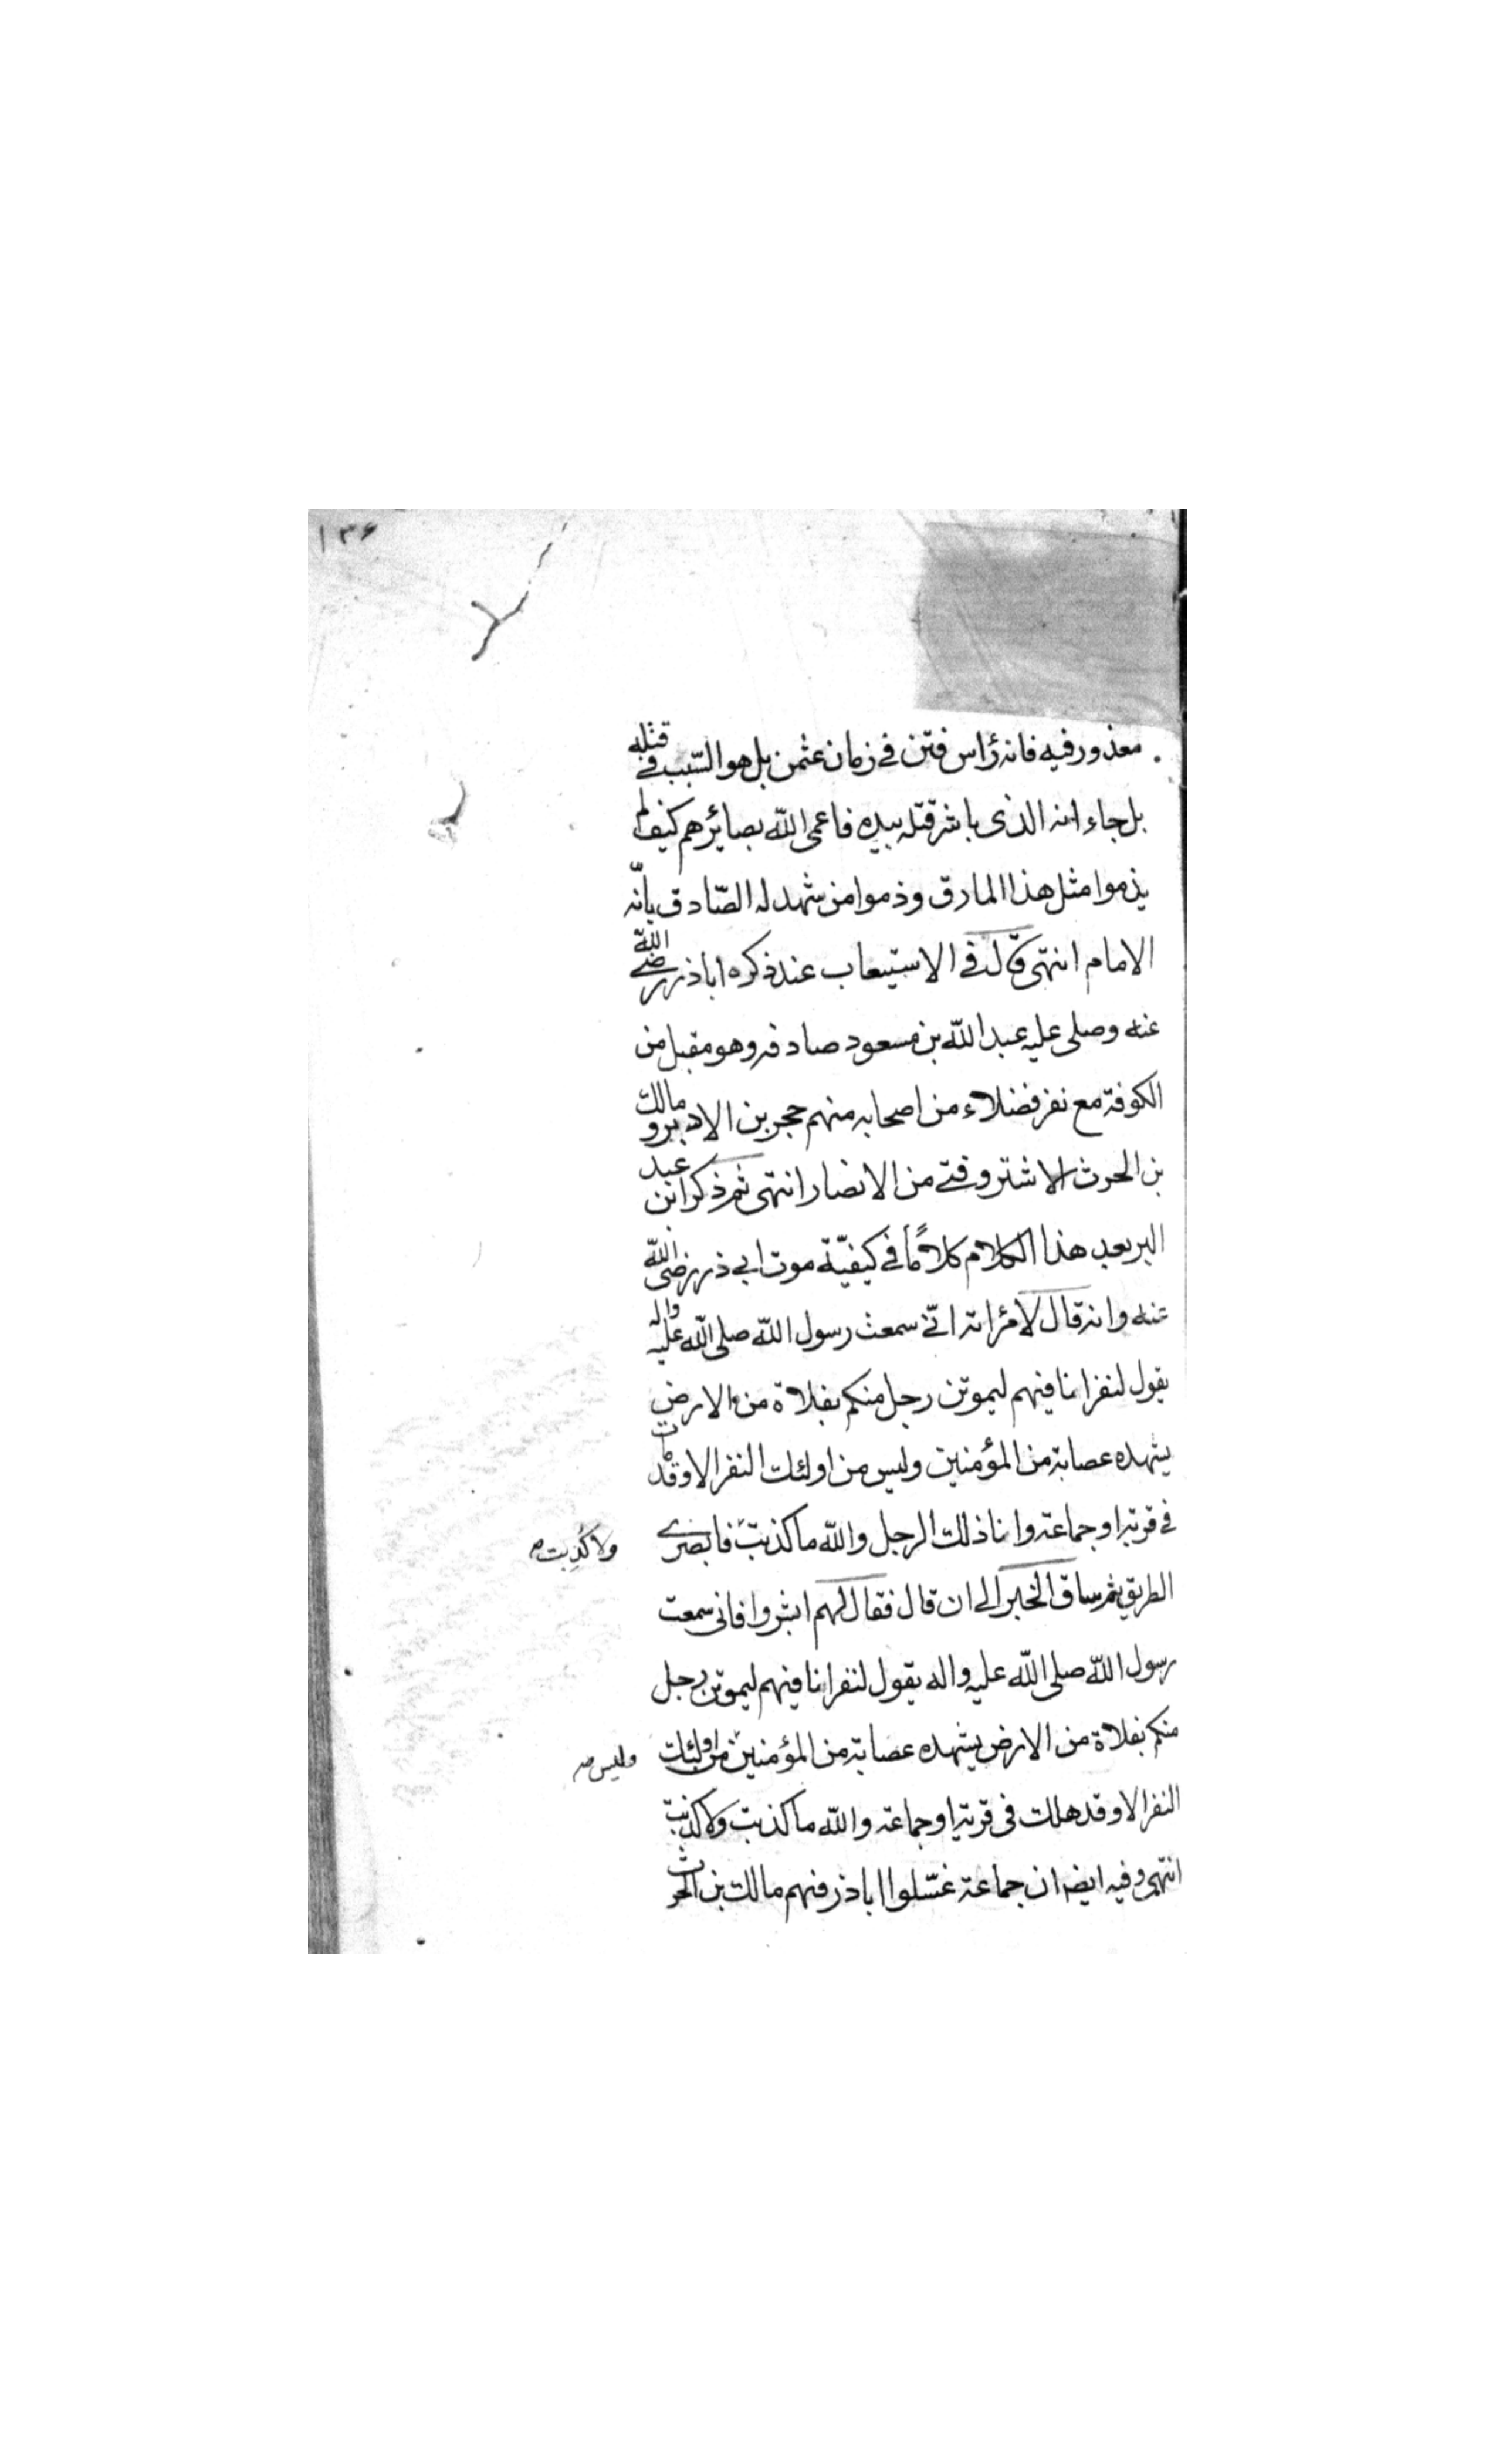 ١٣۶
معذور فيه فانه رأس فتن في زمان عثمن بل هو السّبب في قتله
بل جاء انه الذى باشر قتله بيده فاعمى الله بصائرهم كيف لم
يذموا مثل هذا المارق وذموا من شهد له الصّادق بأنّه
الامام انتهى قال في الاستيعاب عند ذكره اباذر رضي الله
عنه وصلى عليه عبد الله بن مسعود صادفه وهو مقبل من
الكوفة مع نفر فضلاء من اصحابه منهم حجر بن الادبر و مالك
بن الحرث الاشتر وفتى من الانصار انتهى ثم ذكر ابن عبد
البر بعد هذا الكلام كلامًا في كيفيّة موت ابي ذر رضى الله
عنه وانه قال لامرأته انّي سمعت رسول الله صلى الله عليه واله
يقول لنفر انا فيهم ليموتن رجل منكم بفلاة من الارض
يشهده عصابة من المؤمنين وليس من اولئك النفر الا وقد مات
في قرية او جماعة وانا ذلك الرجل والله ما كذبت فابصرى
ولا كُذِبت صح
الطريق ثم ساق الخبر الى ان قال فقال لهم ابشروا فانى سمعت
رسول الله صلى الله عليه واله يقول لنفر انا فيهم ليموتن رجل
منكم بفلاة من الارض يشهده عصابة من المؤمنين من اولئك
وليس صح
النفر الا وقد هلك فى قرية او جماعة والله ما كذبت ولا كذبت
انتهى وفيه ايضا ان جماعة غسّلوا اباذر فمنهم مالك بن الحرث